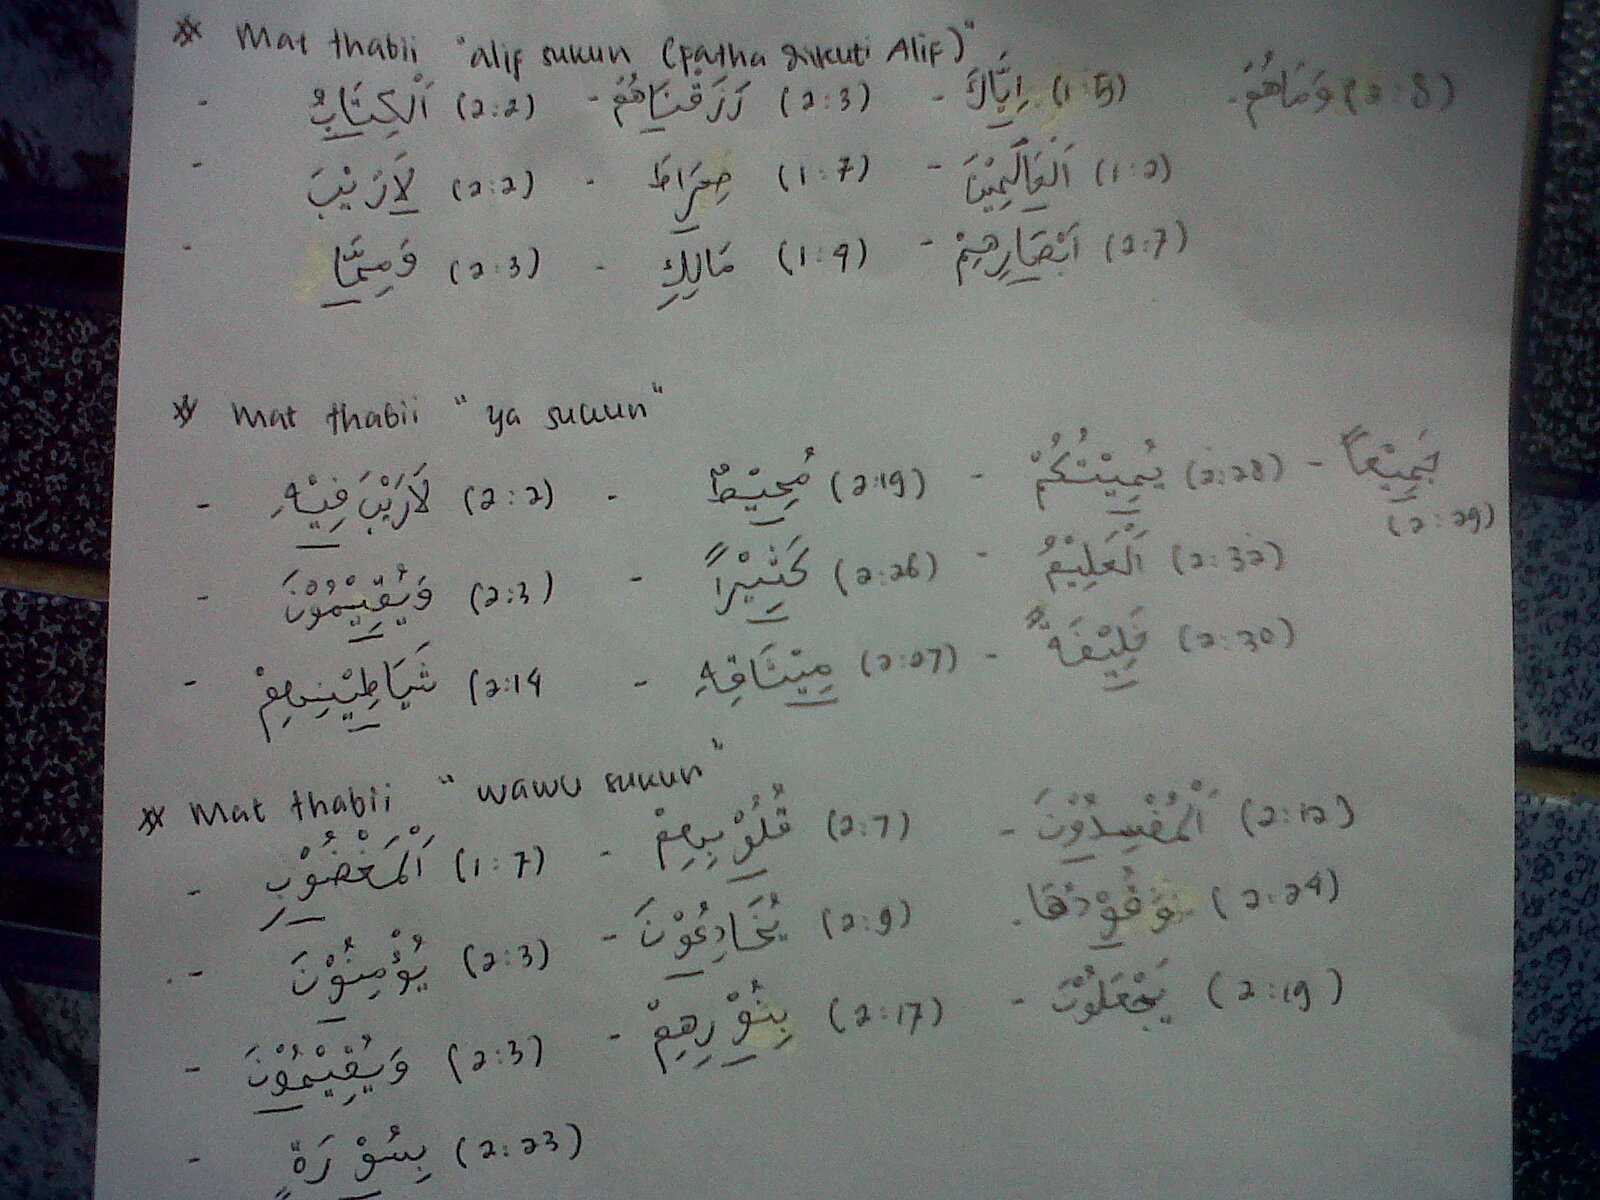 * Mat thabii "alif sukun (fatha diikuti Alif)"
- اَلْكِتَابُ (2:2) - رَزَقْنَاهُمْ (2:3) - اِيَّاكَ (1:5) - وَمَاهُمْ (2:8)
- لَارَيْبَ (2:2) - صِرَاطَ (1:7) - اَلْعَالَمِيْنَ (1:2)
- وَمِمَّا (2:3) - مَالِكِ (1:4) - اَبْصَارِهِمْ (2:7)
* Mat thabii "ya sukun"
- لَارَيْبَ فِيْهِ (2:2) - مُحِيْطٌ (2:19) - يُمِيْتُكُمْ (2:28) - جَمِيْعًا (2:29)
- وَيُقِيْمُوْنَ (2:3) - كَثِيْرًا (2:26) - اَلْعَلِيْمُ (2:32)
- شَيَاطِيْنِهِمْ (2:14 - مِيْثَاقِهِ (2:27) - خَلِيْفَةً (2:30)
* Mat thabii "wawu sukun"
- اَلْمَغْضُوْبِ (1:7) - قُلُوْبِهِمْ (2:7) - اَلْمُفْسِدُوْنَ (2:12)
- يُؤْمِنُوْنَ (2:3) - يُخَادِعُوْنَ (2:9) - وَقُوْدُهَا (2:24)
- وَيُقِيْمُوْنَ (2:3) - بِنُوْرِهِمْ (2:17) - يَجْعَلُوْنَ (2:19)
- بِسُوْرَةٍ (2:23)